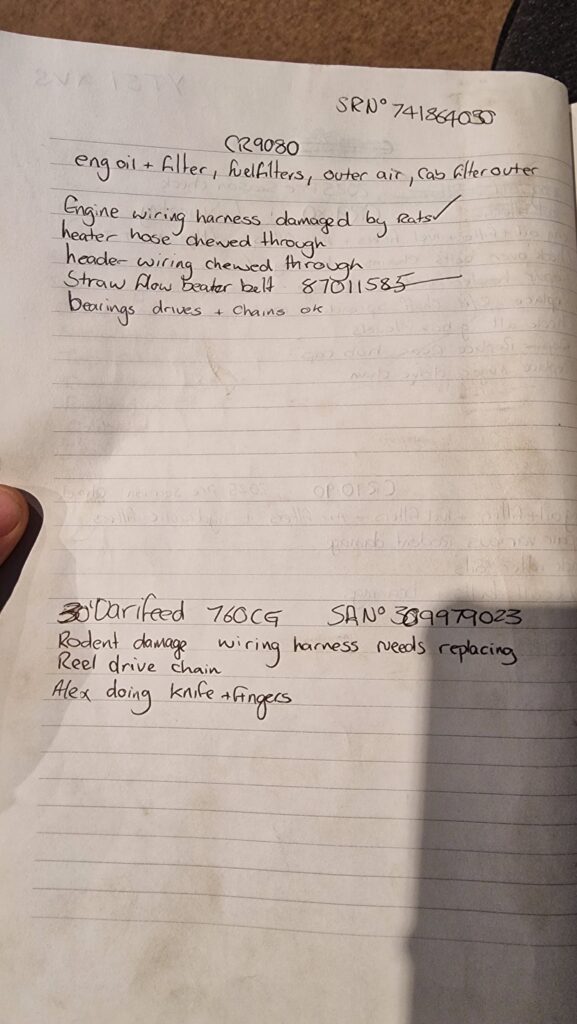 SRNº 741864030
CR9080
eng oil + filter, fuel filters, outer air, cab filter outer
Engine wiring harness damaged by Rats ✓
heater hose chewed through
header wiring chewed through
Straw flow beater belt 87011585
bearings drives + chains ok
30' Varifeed 760CG SRNº 309979023
Rodent damage wiring harness needs replacing
Reel drive chain
Alex doing knife + fingers